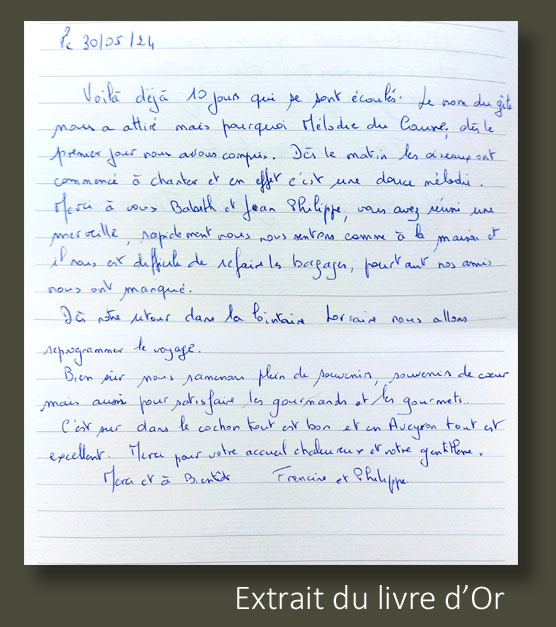 Le 30/05/24
Voilà déjà 10 jours qui se sont écoulés. Le nom du gîte
nous a attiré mais pourquoi Mélodie du Causse, dès le
premier jour nous avons compris. Dès le matin les oiseaux ont
commencé à chanter et en effet c'est une douce mélodie.
Merci à vous Babeth et Jean Philippe, vous avez réuni une
merveille, rapidement nous nous sentons comme à la maison et
il nous est difficile de refaire les bagages, pourtant nos amis
nous ont manqué.
Dès notre retour dans la lointaine Lorraine nous allons
reprogrammer le voyage.
Bien sûr nous ramenons plein de souvenir, souvenir de cœur
mais aussi pour satisfaire les gourmands et les gourmets.
C'est sur dans le cochon tout est bon et en Aveyron tout est
excellent. Merci pour votre accueil chaleureux et votre gentillesse.
Merci et à Bientôt Francine et Philippe
Extrait du livre d'Or